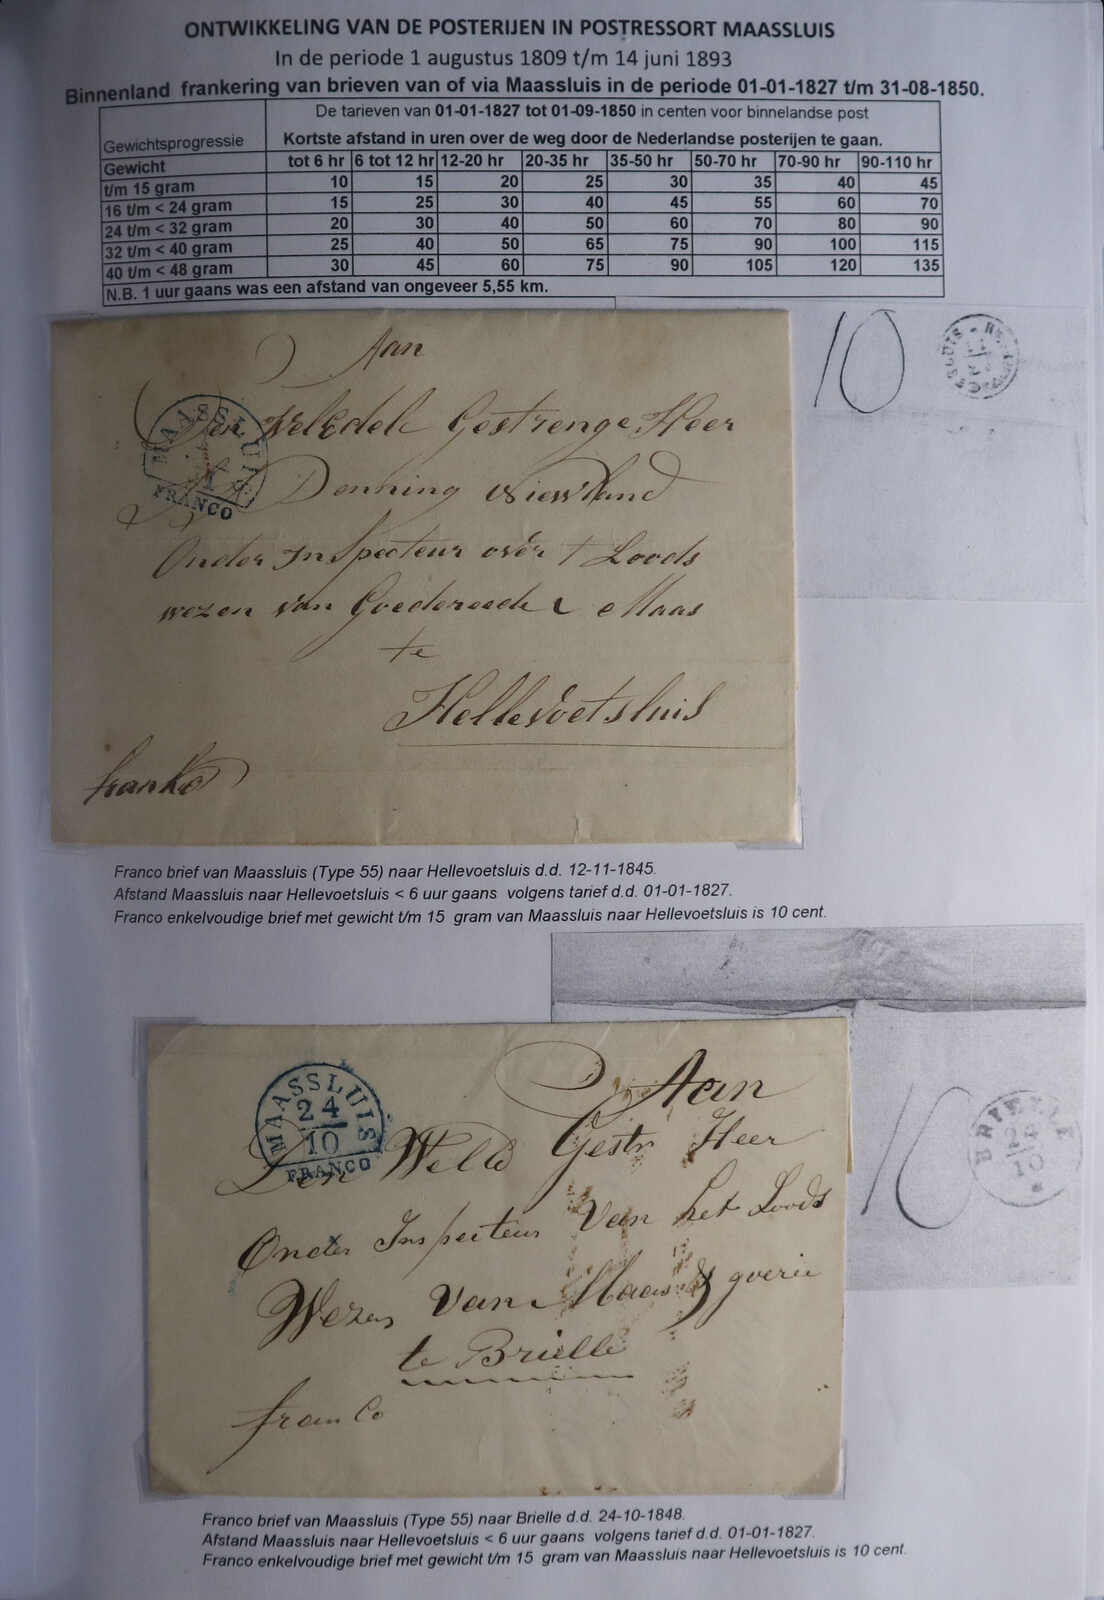 ONTWIKKELING VAN DE POSTERIJEN IN POSTRESSORT MAASSLUIS
In de periode 1 augustus 1809 t/m 14 juni 1893
Binnenland frankering van brieven van of via Maassluis in de periode 01-01-1827 t/m 31-08-1850.
De tarieven van 01-01-1827 tot 01-09-1850 in centen voor binnelandse post
Gewichtsprogressie Kortste afstand in uren over de weg door de Nederlandse posterijen te gaan.
Gewicht tot 6 hr 6 tot 12 hr 12-20 hr 20-35 hr 35-50 hr 50-70 hr 70-90 hr 90-110 hr
t/m 15 gram 10 15 20 25 30 35 40 45
16 t/m < 24 gram 15 25 30 40 45 55 60 70
24 t/m < 32 gram 20 30 40 50 60 70 80 90
32 t/m < 40 gram 25 40 50 65 75 90 100 115
40 t/m < 48 gram 30 45 60 75 90 105 120 135
N.B. 1 uur gaans was een afstand van ongeveer 5,55 km.
10
Aan
MAASSLUIS
FRANCO
Den WelEdele Gestrenge Heer
Denning
Onder Inspecteur over t Loods
wezen van Goedereede & Maas
te
Hellevoetsluis
franko
Franco brief van Maassluis (Type 55) naar Hellevoetsluis d.d. 12-11-1845.
Afstand Maassluis naar Hellevoetsluis < 6 uur gaans volgens tarief d.d. 01-01-1827.
Franco enkelvoudige brief met gewicht t/m 15 gram van Maassluis naar Hellevoetsluis is 10 cent.
MAASSLUIS
24
10
FRANCO
Aan
Den WelEd Gestr Heer
Onder Inspecteur Van het Loods
Wezen Van Maas & goeree
te Brielle
franco
10
BRIELLE
24
10
Franco brief van Maassluis (Type 55) naar Brielle d.d. 24-10-1848.
Afstand Maassluis naar Hellevoetsluis < 6 uur gaans volgens tarief d.d. 01-01-1827.
Franco enkelvoudige brief met gewicht t/m 15 gram van Maassluis naar Hellevoetsluis is 10 cent.